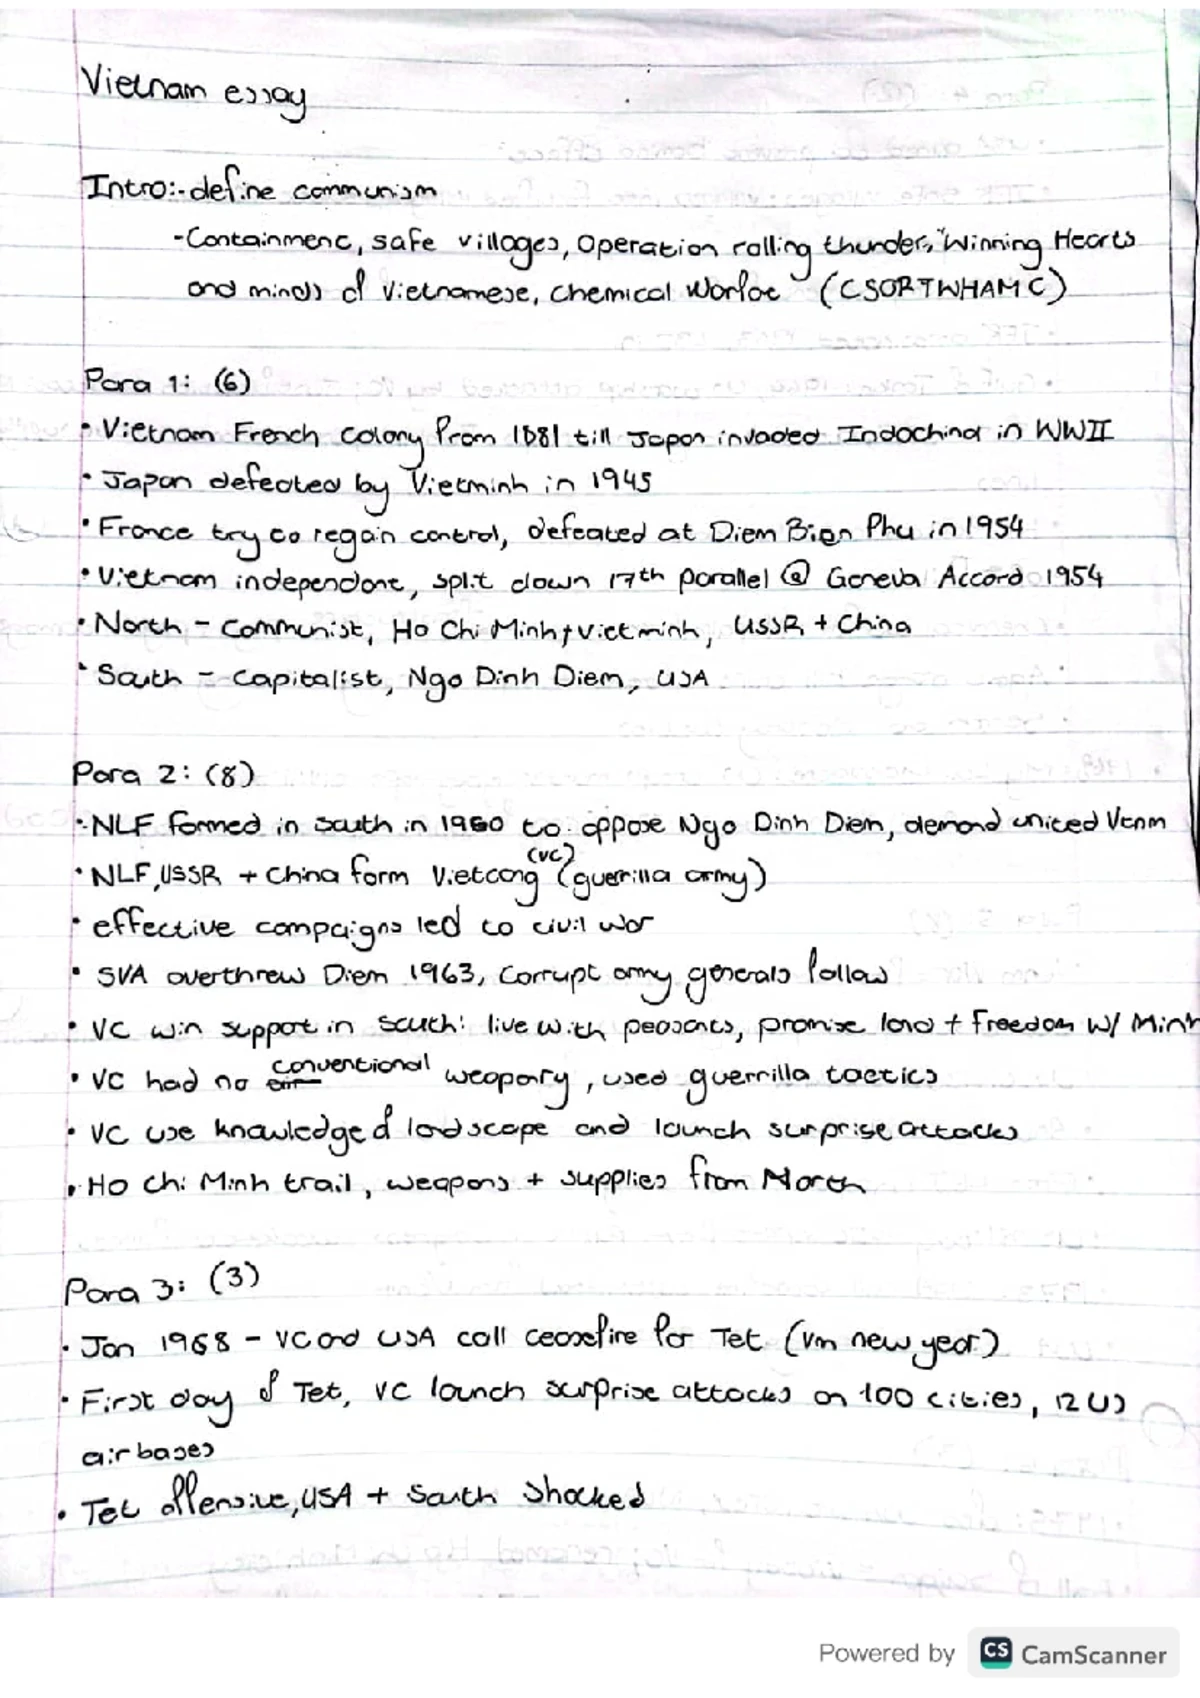 Vietnam essay
Intro:- define communism
- Containment, safe villages, Operation rolling thunder, "Winning Hearts
and minds of Vietnamese, chemical Warfae (CSORTWHAMC)
Para 1: (6)
• Vietnam French colony from 1881 till Japan invaded Indochina in WWII
• Japan defeated by Vietminh in 1945
• France try to regain control, defeated at Diem Bien Phu in 1954
• Vietnam independant, split down 17th parallel @ Geneva Accord 1954
• North - Communist, Ho Chi Minh + Vietminh, USSR + China
• South - Capitalist, Ngo Dinh Diem, USA
Para 2: (8)
• NLF formed in south in 1960 to oppose Ngo Dinh Diem, demand united Vtnm
(VC)
• NLF, USSR + China form Vietcong (guerilla army)
• effective campaigns led to civil war
• SVA overthrew Diem 1963, corrupt army generals follow
• VC win support in south: live with peasants, promise land + freedom w/ Minh
• VC had no conventional weaponry, used guerrilla tactics
• VC use knowledge of landscape and launch surprise attacks
• Ho chi Minh trail, weapons + supplies from North
Para 3: (3)
• Jan 1968 - VC and USA call ceasefire for Tet (vm new year)
• First day of Tet, VC launch surprise attacks on 100 cities, 12 US
airbases
• Tet offensive, USA + South shocked
Powered by CS CamScanner